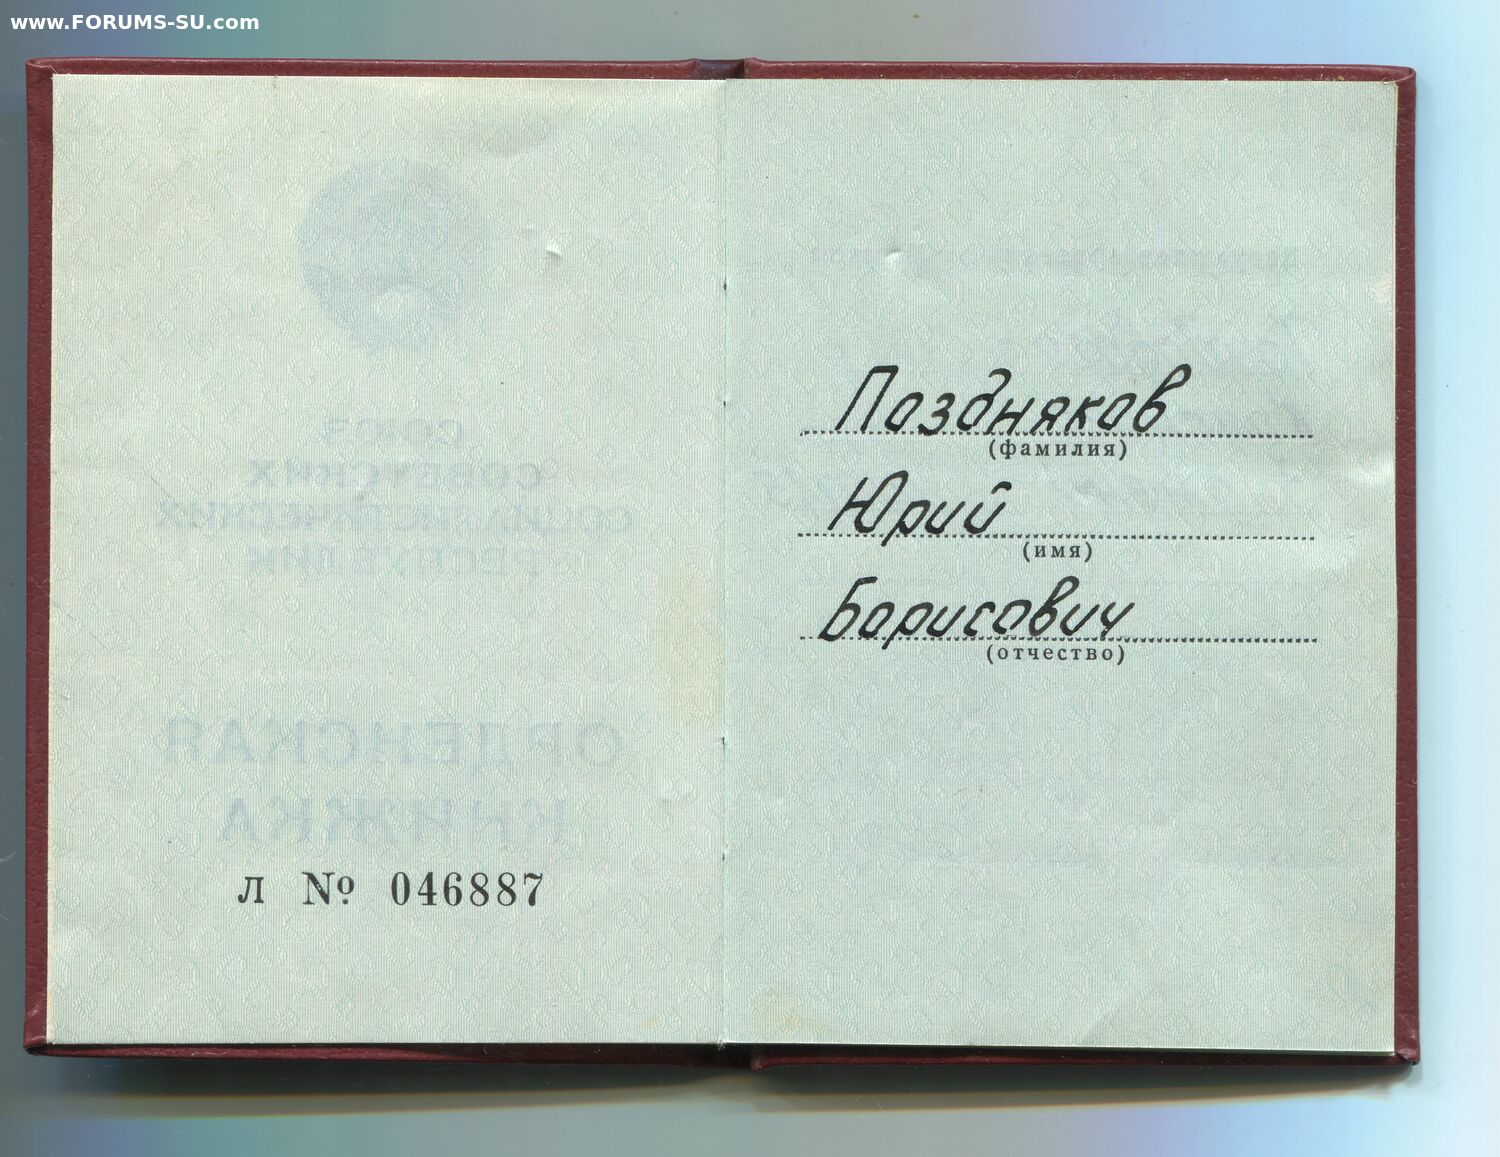 www.FORUMS-SU.com
СОЮЗ
СОВЕТСКИХ
СОЦИАЛИСТИЧЕСКИХ
РЕСПУБЛИК
ОРДЕНСКАЯ
КНИЖКА
Л № 046887
Поздняков
(фамилия)
Юрий
(имя)
Борисович
(отчество)